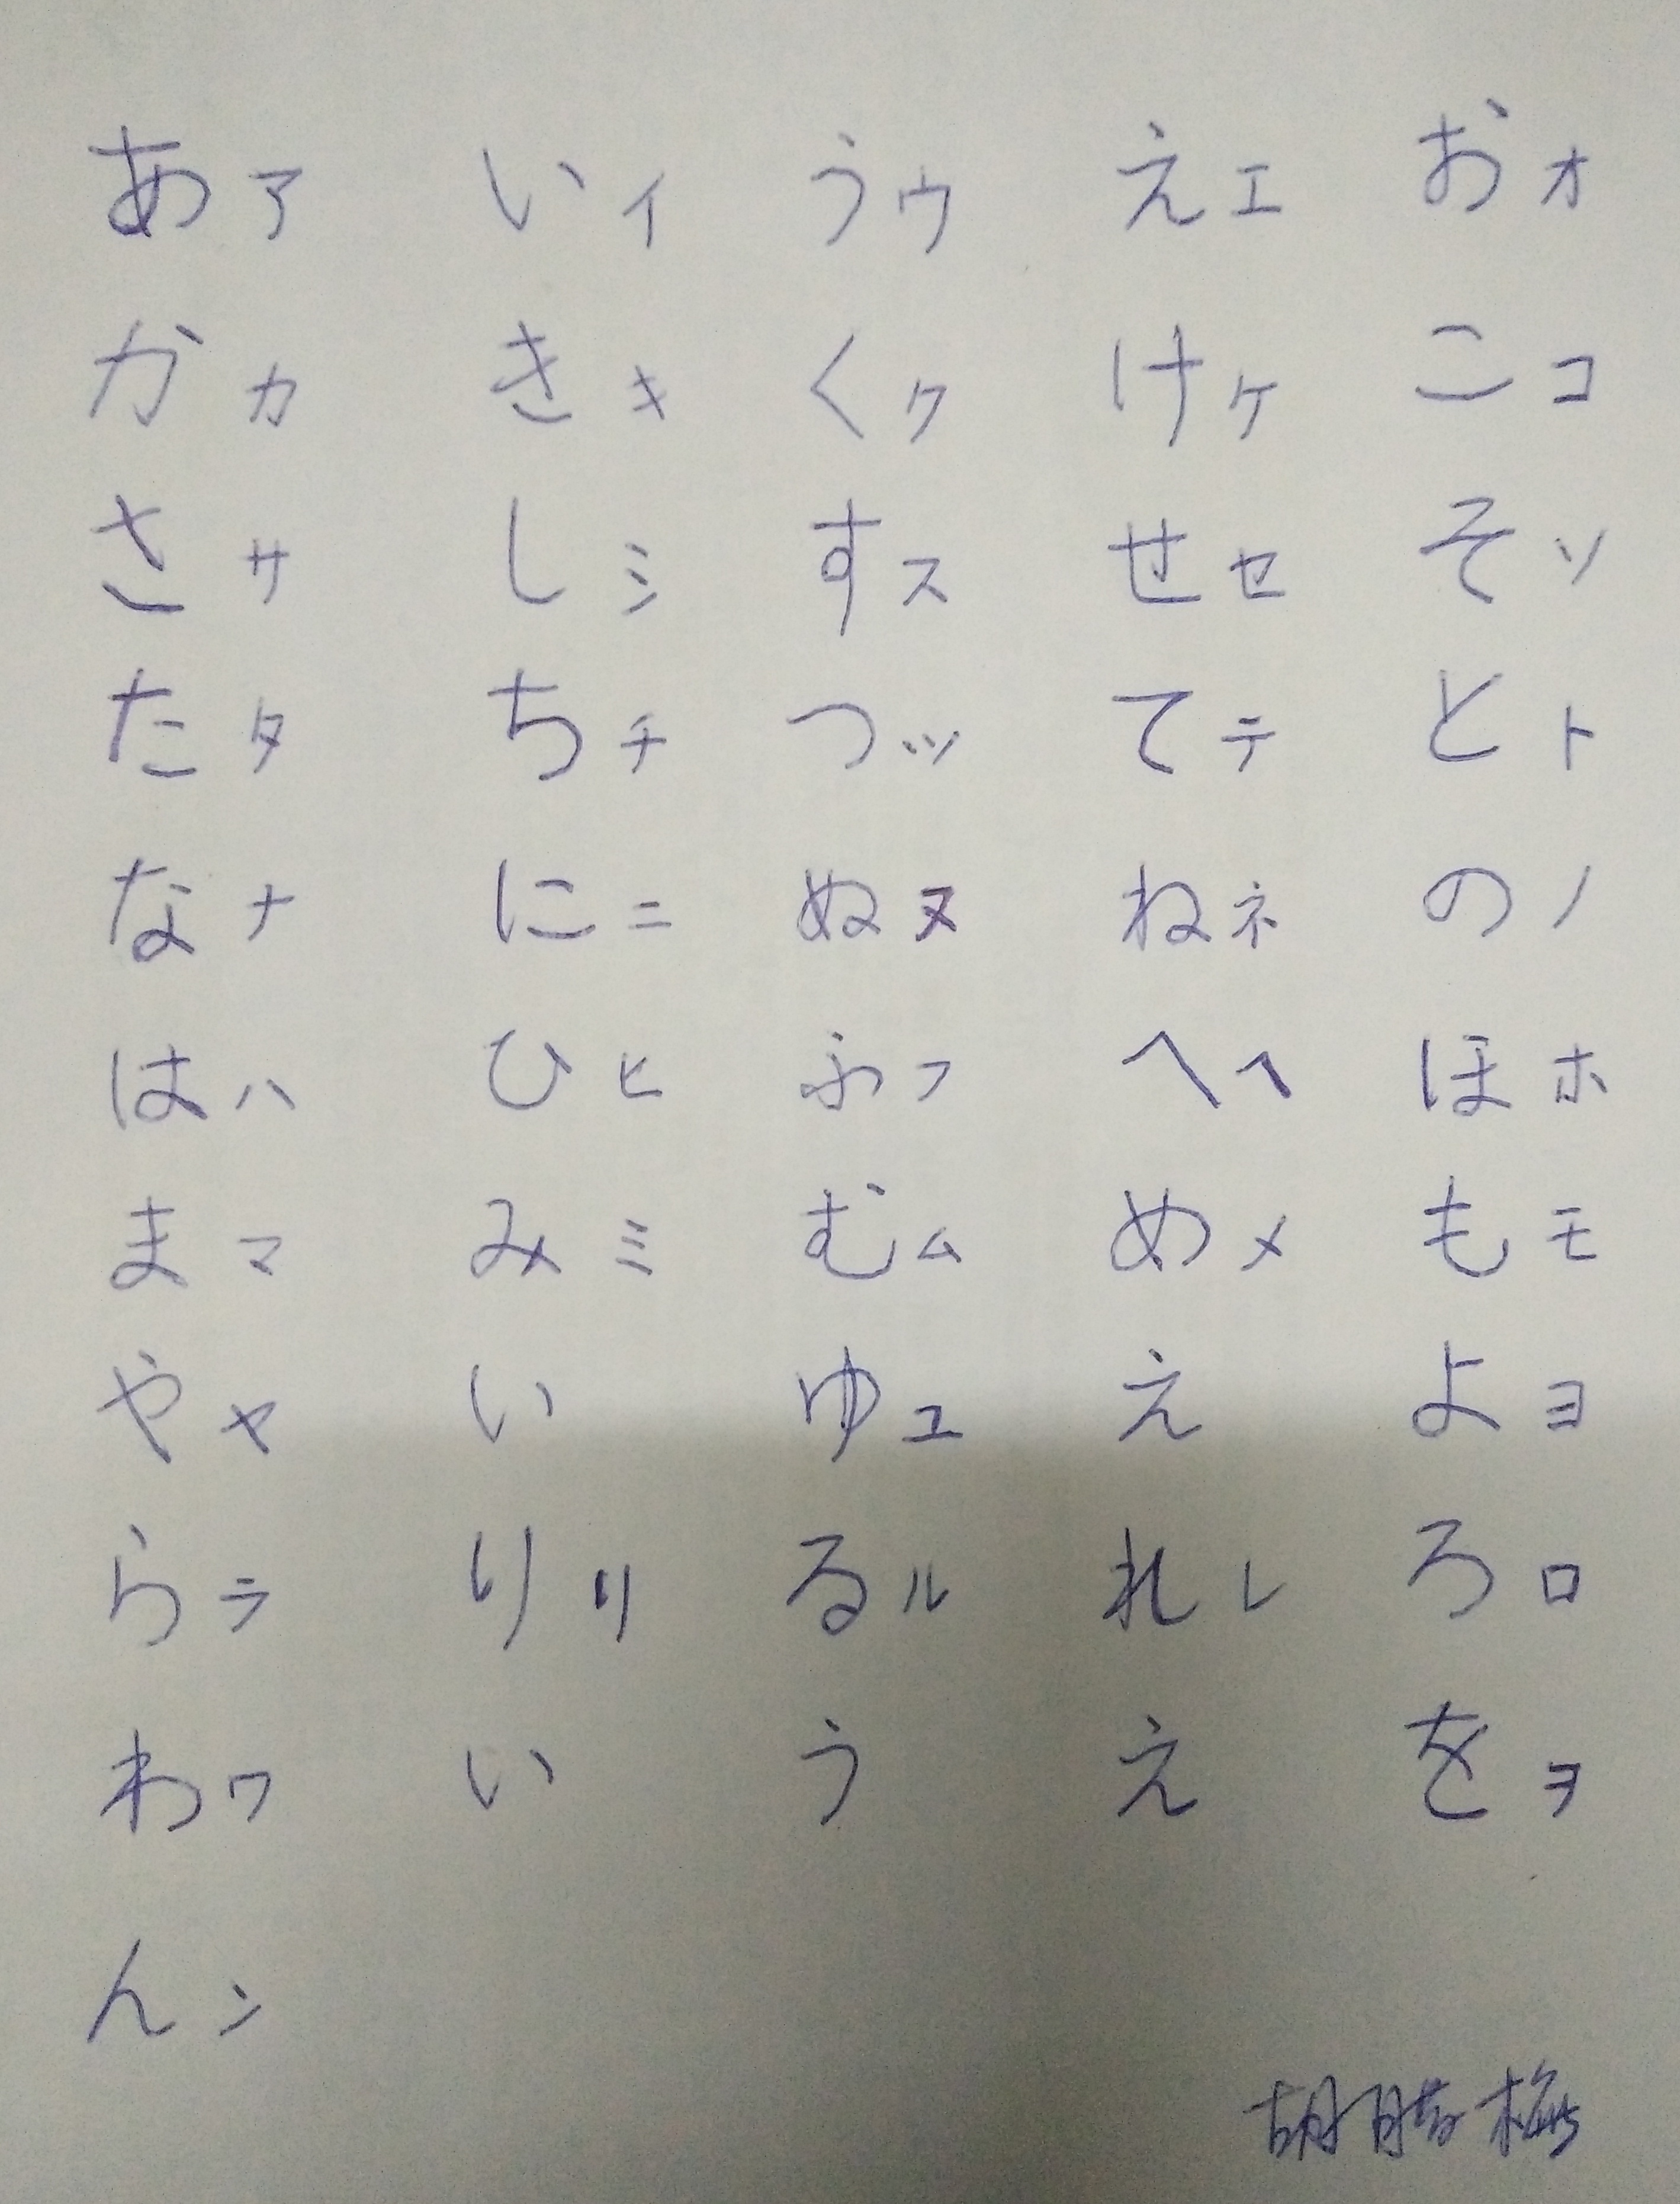 あ ア い イ う ウ え エ お オ
か カ き キ く ク け ケ こ コ
さ サ し シ す ス せ セ そ ソ
た タ ち チ つ ツ て テ と ト
な ナ に ニ ぬ ヌ ね ネ の ノ
は ハ ひ ヒ ふ フ へ ヘ ほ ホ
ま マ み ミ む ム め メ も モ
や ヤ い ゆ ユ え よ ヨ
ら ラ り リ る ル れ レ ろ ロ
わ ワ い う え を ヲ
ん ン
胡勝梅